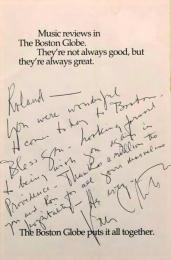 Music reviews in
The Boston Globe.
They're not always good, but
they're always great.
Roland —
You were wonderful
to come to Boston.
Bless you. Looking forward
to being with you again in
Providence. Thanks a million to
you for all your
hospitality. As ever,
The Boston Globe puts it all together.